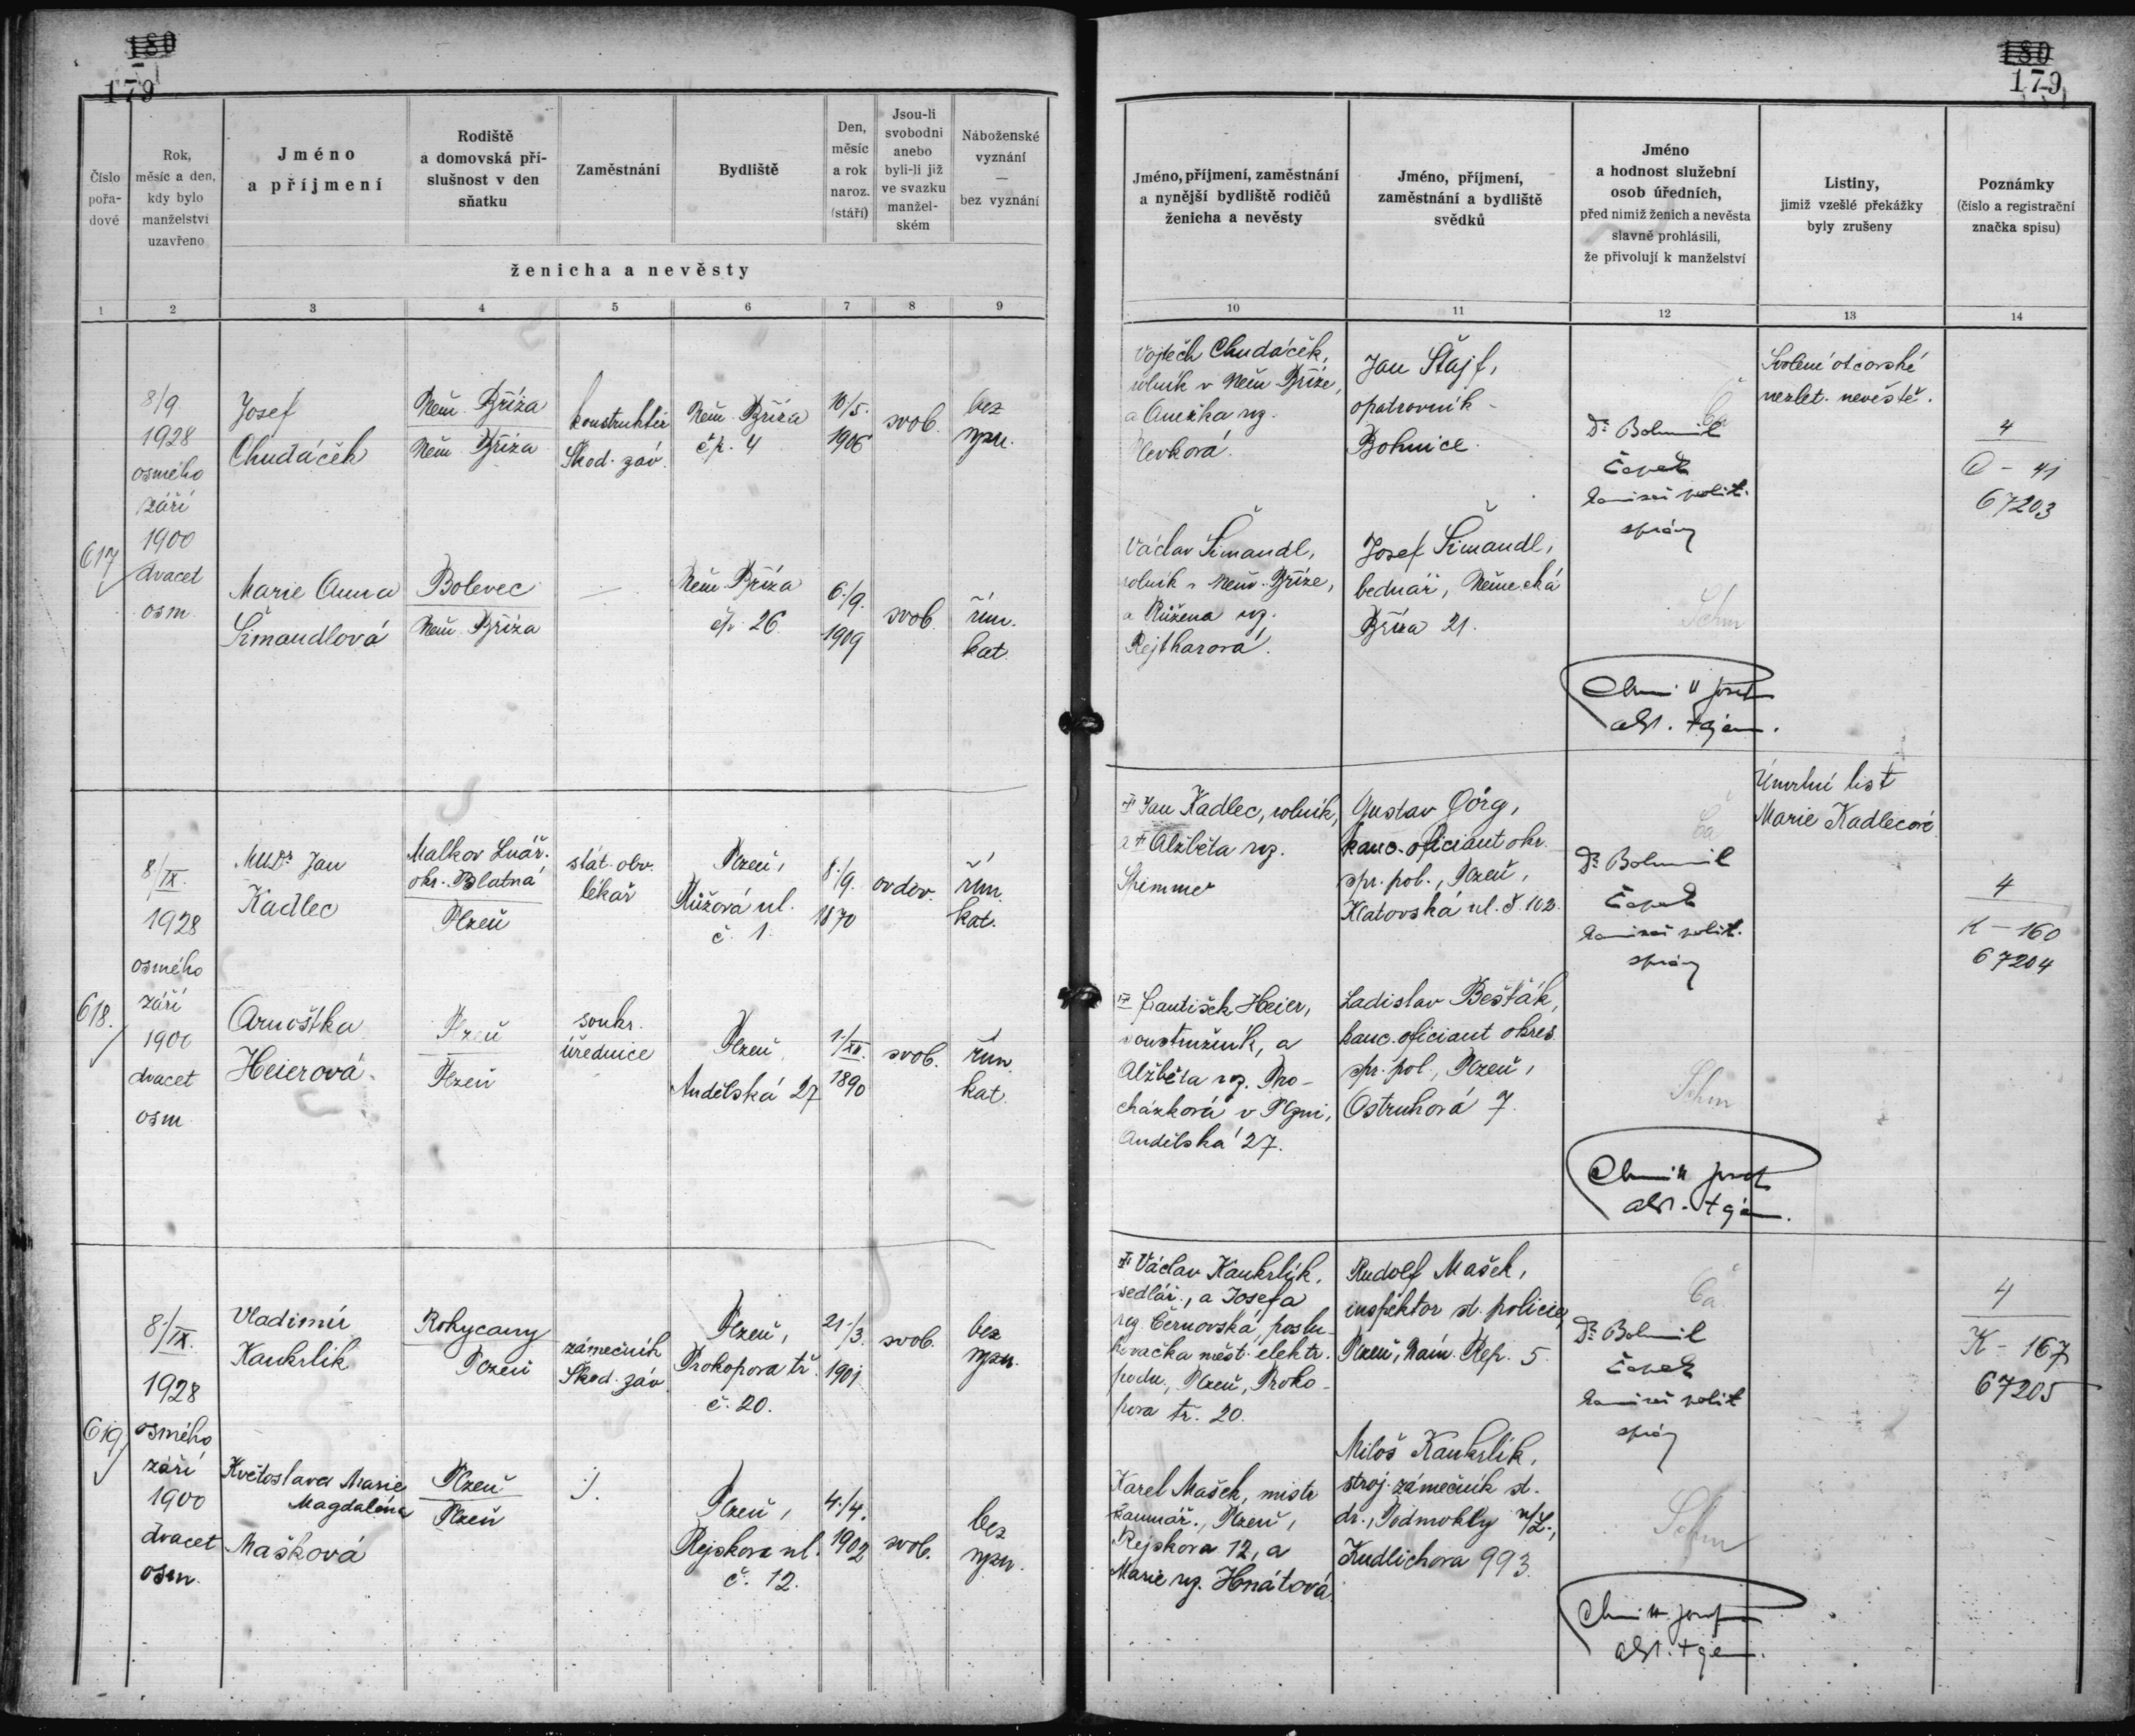 180
179
180
179
Číslo pořa- dové
Rok, měsíc a den, kdy bylo manželství uzavřeno
Jméno a příjmení
Rodiště a domovská pří- slušnost v den sňatku
Zaměstnání
Bydliště
Den, měsíc a rok naroz. (stáří)
Jsou-li svobodni anebo byli-li již ve svazku manžel- ském
Náboženské vyznání — bez vyznání
ženicha a nevěsty
Jméno, příjmení, zaměstnání a nynější bydliště rodičů ženicha a nevěsty
Jméno, příjmení, zaměstnání a bydliště svědků
Jméno a hodnost služební osob úředních, před nimiž ženich a nevěsta slavně prohlásili, že přivolují k manželství
Listiny, jimiž vzešlé překážky byly zrušeny
Poznámky (číslo a registrační značka spisu)
1 2 3 4 5 6 7 8 9 10 11 12 13 14
617
8/9
1928
osmého
září
1900
dvacet
osm
Josef
Chudáček
Něm. Bříza
Něm. Bříza
konstruktér
Škod. záv.
Něm. Bříza
č.p. 4
10/5.
1906
svob.
bez
vyzn.
Vojtěch Chudáček,
rolník v Něm. Bříze,
a Anežka roz.
Jan Štajf,
opatrovník -
Bohnice.
Dr Bohumil
Čapek
komisař polit.
správy
Ča
Svolení otcovské
nezlet. nevěstě.
4
O - 41
67203
Marie Anna
Šimandlová
Bolevec
Něm. Bříza
—
Něm. Bříza
čp. 26.
6./9.
1909
svob.
řím.
kat.
Václav Šimandl,
rolník v Něm. Bříze,
a Růžena roz.
Rejtharová.
Josef Šimandl,
bednář, Německá
Bříza 21.
Schm
618.
8/IX.
1928
osmého
září
1900
dvacet
osm
MUDr Jan
Kadlec
Malkov Lnář.
okr. Blatná
Plzeň
stát. obv.
lékař
Plzeň,
Růžová ul.
č. 1.
8./9.
1870
ovdov.
řím.
kat.
† Jan Kadlec, rolník,
a † Alžběta roz.
Gustav Görg,
kanc. oficiant okr.
spr. pol., Plzeň,
Klatovská ul. č. 102.
Dr Bohumil
Čapek
komisař polit.
správy
Ča
Úmrtní list
Marie Kadlecové
4
K - 160
67204
Arnoštka
Heierová.
Plzeň
Plzeň
soukr.
úřednice
Plzeň
Andělská 27
1890
svob.
řím.
kat.
† František Heier,
soustružník, a
Alžběta roz. Pro-
cházková v Plzni,
Andělská 27.
Ladislav Bešťák,
kanc. oficiant okres.
spr. pol., Plzeň,
Ostruhová 7.
Schm
619
8./IX.
1928
osmého
září
1900
dvacet
osm.
Vladimír
Kaukrlík
Rokycany
Plzeň
zámečník
Škod. záv.
Plzeň,
Prokopova tř.
č. 20.
21./3.
1901
svob.
bez
vyzn.
† Václav Kaukrlík,
sedlář., a Josefa
roz. Černovská, poslu-
hovačka měst. elektr.
podn., Plzeň, Proko-
pova tř. 20.
Rudolf Mašek,
inspektor st. policie,
Plzeň, Nám. Rep. 5.
Dr Bohumil
Čapek
komisař polit
správy
Ča
4
K - 167
67205
Květoslava Marie
Magdaléna
Mašková
Plzeň
Plzeň
Plzeň,
Rejskova ul.
č. 12.
4./4.
1902
svob.
bez
vyzn.
Karel Mašek, mistr
Plzeň,
Rejskova 12, a
Marie roz. Hnátová.
Miloš Kaukrlík,
stroj. zámečník st.
dr., Podmokly n/L.,
Kudlichova 993.
Schm